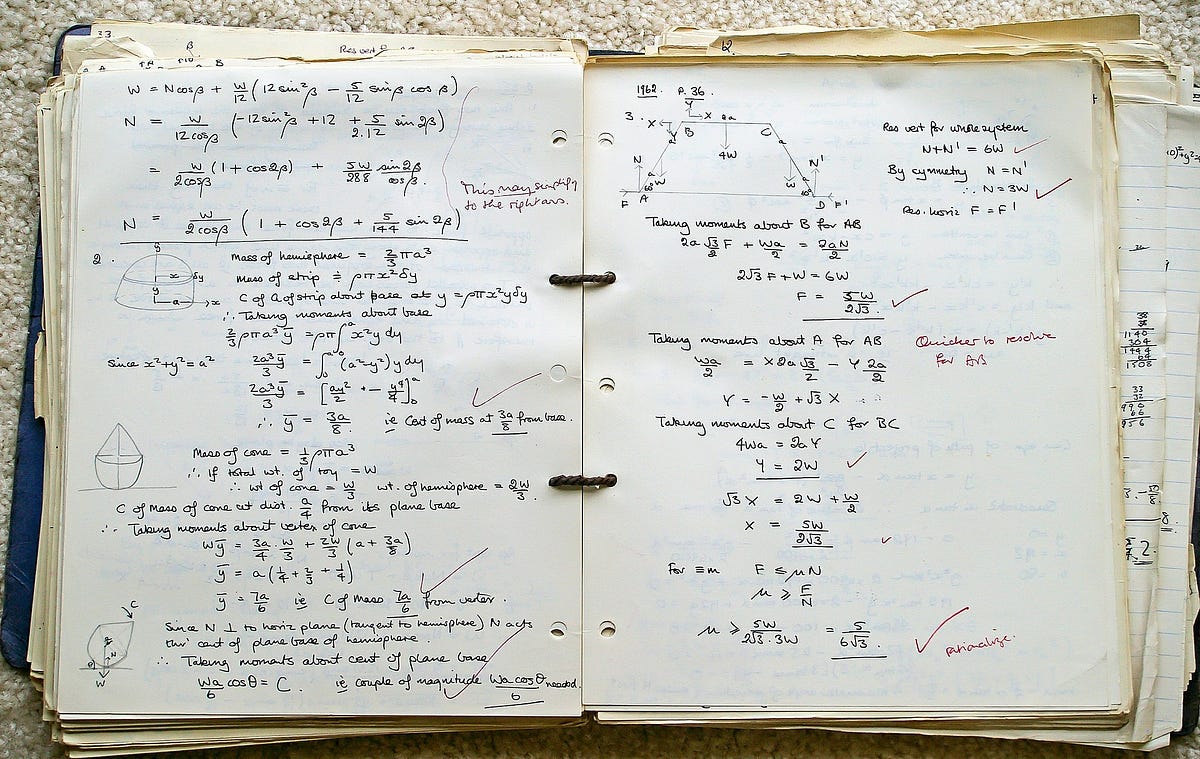 33
W = Ncosβ + W/12 (12sin²β − 5/12 sinβ cosβ)
N = W/12cosβ (−12sin²β + 12 + 5/2.12 sin2β)
= W/2cosβ (1 + cos2β) + 5W/288 sin2β/cosβ.
This may simplify
to the right ans.
N = W/2cosβ (1 + cos2β + 5/144 sin2β)
2.
Mass of hemisphere = 2/3 πa³
Mass of strip ≑ ρπx²δy
C of G of strip about base at y = ρπx²yδy
∴ Taking moments about base
2/3 ρπa³ȳ = ρπ∫₀ᵃ x²y dy
Since x²+y²=a² 2a³ȳ/3 = ∫₀ᵃ (a²−y²) y dy
2a³ȳ/3 = [ay²/2 − y⁴/4]₀ᵃ
∴ ȳ = 3a/8. ie Cent of mass at 3a/8 from base.
Mass of cone = 1/3 ρπa³
∴ if total wt. of toy = W
∴ wt of cone = W/3 wt. of hemisphere = 2W/3.
C of Mass of cone at dist. a/4 from its plane base
∴ Taking moments about vertex of cone
Wȳ = 3a/4 . W/3 + 2W/3 (a + 3a/8)
ȳ = a(1/4 + 2/3 + 1/4)
ȳ = 7a/6 ie C of Mass 7a/6 from vertex.
Since N ⊥ to horiz plane (tangent to hemisphere) N acts
thro' cent of plane base of hemisphere.
∴ Taking moments about cent of plane base
Wa/6 cosθ = C. ie couple of magnitude Wa cosθ/6 needed.
1962. P. 36.
3.
Y
X X 2a
B C
4W
N N'
W W
60° 60°
F A D F'
Res vert for whole system
N+N' = 6W
By symmetry N = N'
∴ N = 3W
Res. horiz F = F'
Taking moments about B for AB
2a √3/2 F + Wa/2 = 2aN/2
2√3 F + W = 6W
F = 5W/2√3.
Taking moments about A for AB
Quicker to resolve
for AB
Wa/2 = X 2a √3/2 − Y 2a/2
Y = −W/2 + √3 X
Taking moments about C for BC
4Wa = 2aY
Y = 2W
√3 X = 2W + W/2
X = 5W/2√3
for ≡m F ≤ μN
μ ≥ F/N
μ ≥ 5W/2√3.3W = 5/6√3.
rationalize.